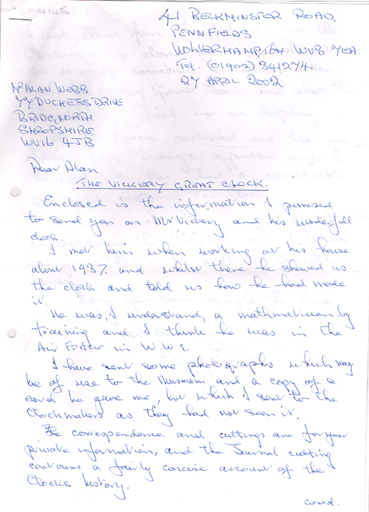 41 BECKMINSTER ROAD,
PENNFIELDS
WOLVERHAMPTON WV3 7EA.
Tel. (01902) 341274.
27 APRIL 2002
Mr ALAN WEBB
77 DUCHESS DRIVE
BRIDGNORTH
SHROPSHIRE
WV16 4JB
Dear Alan
THE VICKERY GREAT CLOCK.
Enclosed is the information I promised
to send you on Mr Vickery and his wonderful
clock.
I met him when working at his house
about 1937 and whilst there he showed us
the clock and told us how he had made
it.
He was, I understand, a mathematician by
training and I think he was in the
Air Force in WW1.
I have sent some photographs which may
be of use to the Museum and a copy of a
card he gave me, but which I sent to the
Clockmakers as they had not seen it.
The correspondence and cuttings are for your
private information, and the Journal cutting
contains a fairly concise account of the
Clocks history.
contd.